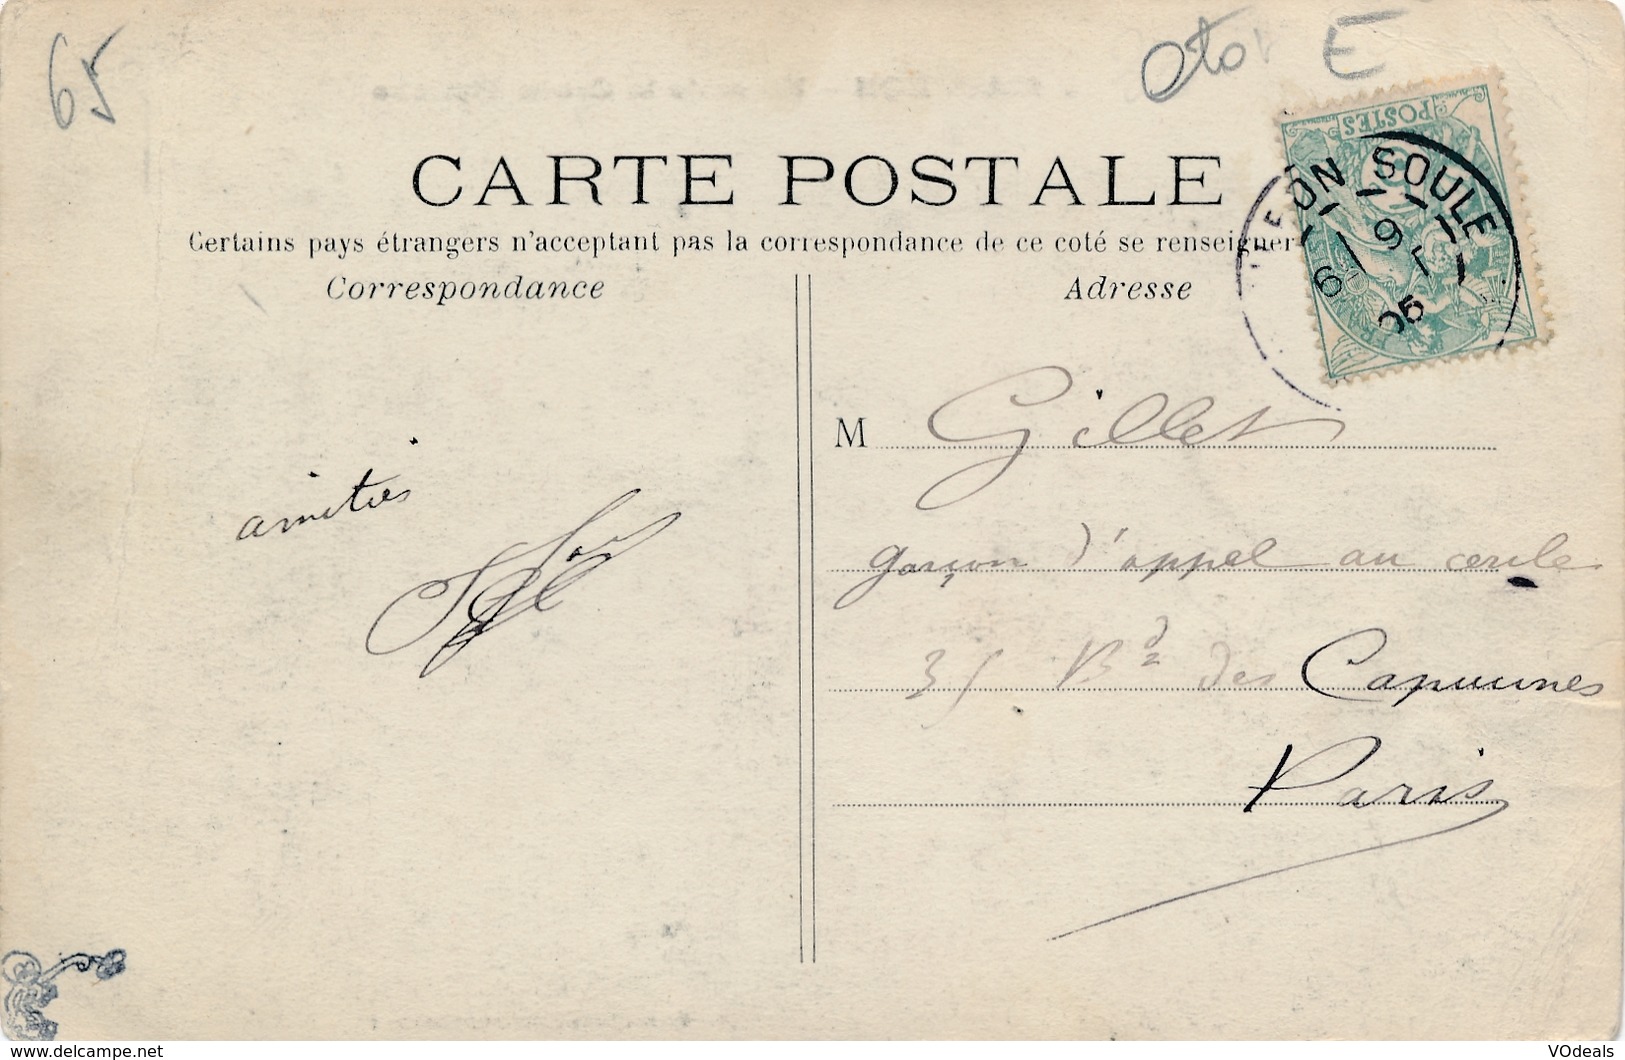 65
E
CARTE POSTALE
Certains pays étrangers n'acceptant pas la correspondance de ce coté se renseigner
Correspondance
Adresse
POSTES
ON SOULE
6
9
05
M Gillet
amitiés
garçon d'appel au cercle
35 Bd des Capucines
Paris
VOdeals
http://www.delcampe.net